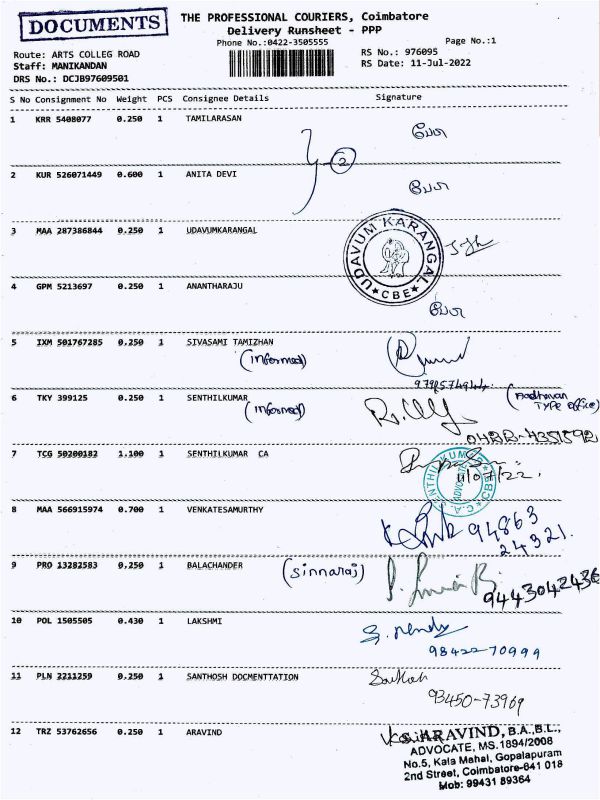 DOCUMENTS
THE PROFESSIONAL COURIERS, Coimbatore
Delivery Runsheet - PPP
Phone No.:0422-3505555
Page No.:1
Route: ARTS COLLEG ROAD
Staff: MANIKANDAN
DRS No.: DCJB97609501
RS No.: 976095
RS Date: 11-Jul-2022
S No Consignment No Weight PCS Consignee Details Signature
1 KRR 5408077 0.250 1 TAMILARASAN
2
2 KUR 526071449 0.600 1 ANITA DEVI
3 MAA 287386844 0.250 1 UDAVUMKARANGAL
UDAVUM KARANGAL
CBE
4 GPM 5213697 0.250 1 ANANTHARAJU
5 IXM 501767285 0.250 1 SIVASAMI TAMIZHAN
(informed)
6 TKY 399125 0.250 1 SENTHILKUMAR
(informed)
(Aadhavan
TYPE office)
0422-4351592
7 TCG 50200182 1.100 1 SENTHILKUMAR CA
C.A. SINTHILKUMAR
ADVOCATE
CBE
11/07/22.
8 MAA 566915974 0.700 1 VENKATESAMURTHY
94863
24321.
9 PRO 13282583 0.250 1 BALACHANDER
(Sinnaraj)
9443042436
10 POL 1505505 0.430 1 LAKSHMI
98422-70999
11 PLN 2211259 0.250 1 SANTHOSH DOCMENTTATION
93450-73969
12 TRZ 53762656 0.250 1 ARAVIND
ARAVIND, B.A.,B.L.,
ADVOCATE, MS.1894/2008
No.5, Kala Mahal, Gopalapuram
2nd Street, Coimbatore-641 018
Mob: 99431 89364